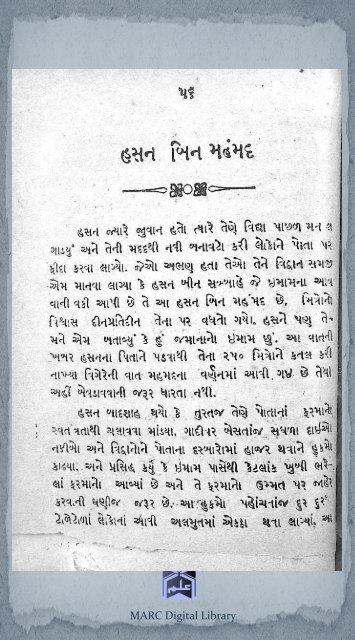 ૫૬
હસન બિન મહંમદ
હસન જ્યારે જુવાન હતો ત્યારે તેણે વિદ્યા પાછળ મન લ
ગાડયું અને તેની મદદથી નવી બનાવટો કરી લોકોને પોતા પર
ફીદા કરવા લાગ્યો. જેઓ અભણ હતા તેઓ તેને વિદ્વાન સમજી
એમ માનવા લાગ્યા કે હસન બીન સબ્બાહે જે ઇમામના આવ
વાની વકી આપી છે તે આ હસન બિન મહંમદ છે. મિત્રોનો
વિશ્વાસ દીનપ્રતિદીન તેના પર વધતો ગયો. હસને પણ તે-
મને એમ બતાવ્યું કે હું જમાનાનો ઇમામ છું. આ વાતની
ખબર હસનના પિતાને પડવાથી તેના ૨૫૦ મિત્રોને કતલ કરી
નાખ્યા વિગેરેની વાત મહમદના વર્ણનમાં આવી ગઇ છે તેથી
અહીં બેવડાવવાની જરૂર ધારતા નથી.
હસન બાદશાહ થયો કે તુરતજ તેણે પોતાનાં ફરમાનો
સ્વતંત્રતાથી ચલાવવા માંડયા. ગાદીપર બેસતાંજ સઘળા દાઇઓ
નકીબો અને વિદ્વાનોને પોતાના દરબારમાં હાજર થવાને હુકમો
કાઢયા. અને પ્રસિદ્ધ કર્યું કે ઇમામ પાસેથી કેટલાંક ખુબી ભરે-
લાં ફરમાનો આવ્યાં છે અને તે ફરમાનો ઉમ્મત પર જાહેર
કરવાની ઘણીજ જરૂર છે. આ હુકમો પહોંચતાંજ દુર દુરથી
ટોળેટોળાં લોકોનાં આવી અલમુતમાં એકઠાં થવા લાગ્યાં, આ
MARC Digital Library